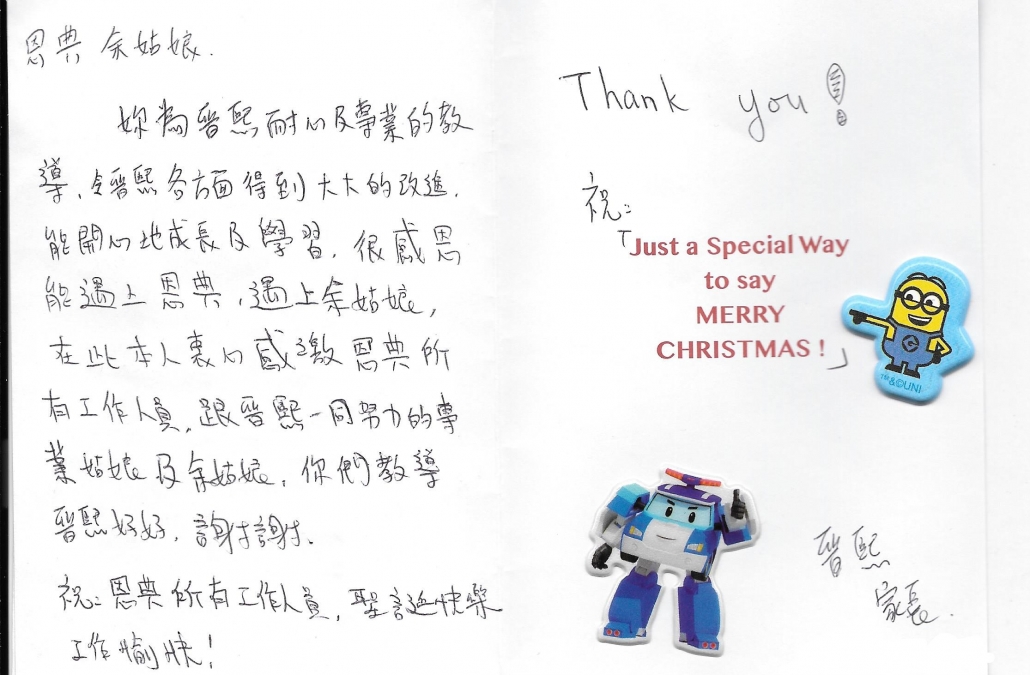 恩典 余姑娘.
妳為晉熙耐心及專業的教
導,令晉熙各方面得到大大的改進.
能開心地成長及學習,很感恩
能遇上恩典,遇上余姑娘,
在此本人衷心感激恩典所
有工作人員,跟晉熙一同努力的專
業姑娘及余姑娘,你們教導
晉熙好好,謝謝.
祝:恩典所有工作人員,聖誕快樂
工作愉快!
Thank you!
祝:
「Just a Special Way
to say
MERRY
CHRISTMAS !」
™&©UNI
晉熙
家長.